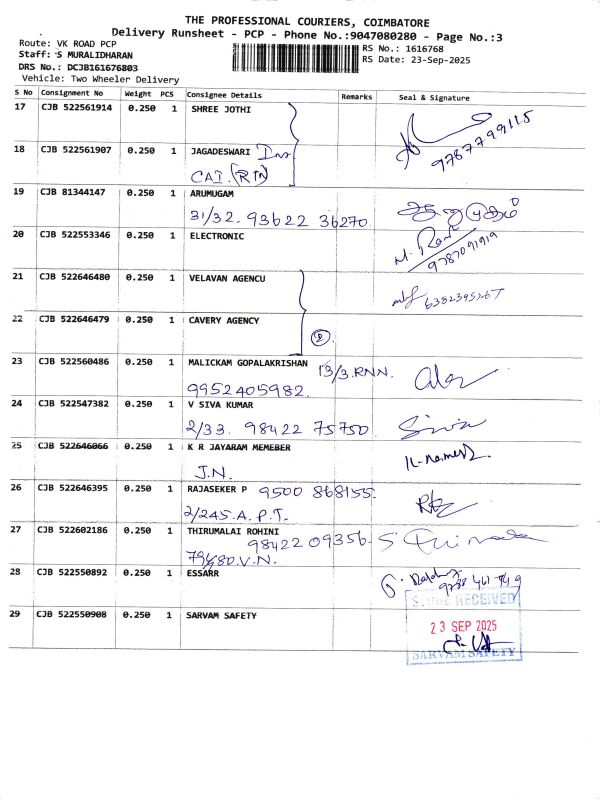 THE PROFESSIONAL COURIERS, COIMBATORE
Delivery Runsheet - PCP - Phone No.:9047080280 - Page No.:3
Route: VK ROAD PCP
RS No.: 1616768
Staff: S MURALIDHARAN
RS Date: 23-Sep-2025
DRS No.: DCJB161676803
Vehicle: Two Wheeler Delivery
S No Consignment No Weight PCS Consignee Details Remarks Seal & Signature
17 CJB 522561914 0.250 1 SHREE JOTHI
9787799115
18 CJB 522561907 0.250 1 JAGADESWARI
CAI. (RTN)
19 CJB 81344147 0.250 1 ARUMUGAM
31/32. 93622 36270.
20 CJB 522553346 0.250 1 ELECTRONIC
M. Rani
9787091919
21 CJB 522646480 0.250 1 VELAVAN AGENCU
6382395267
22 CJB 522646479 0.250 1 CAVERY AGENCY
2
23 CJB 522560486 0.250 1 MALICKAM GOPALAKRISHAN 13/3.RNN.
9952405982.
24 CJB 522547382 0.250 1 V SIVA KUMAR
2/33. 98422 75750. Siva
25 CJB 522646066 0.250 1 K R JAYARAM MEMEBER
J.N.
26 CJB 522646395 0.250 1 RAJASEKER P 9500 868155.
2/245.A.P.T.
27 CJB 522602186 0.250 1 THIRUMALAI ROHINI
9842209356.
79/80.V.N.
28 CJB 522550892 0.250 1 ESSARR
29 CJB 522550908 0.250 1 SARVAM SAFETY
STORE RECEIVED
23 SEP 2025
SARVAM SAFETY